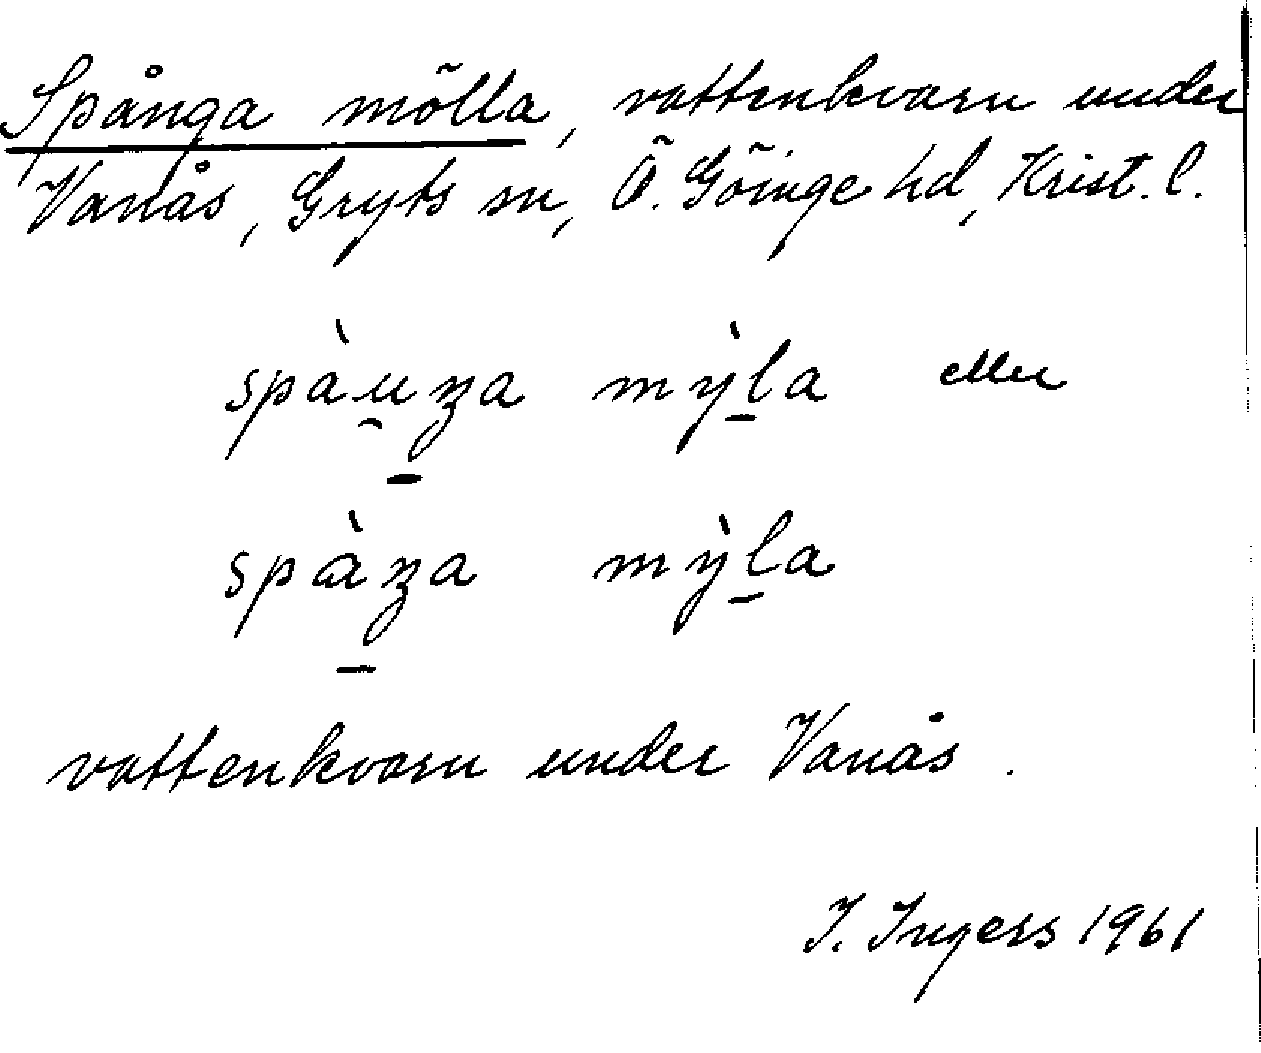 Spånga mölla, vattenkvarn under
Vanås, Gryts sn, Ö. Göinge hd, Krist. l.
spàu̯ʒa mỳl̠a eller
spàʒa mỳl̠a
vattenkvarn under Vanås.
I. Ingers 1961